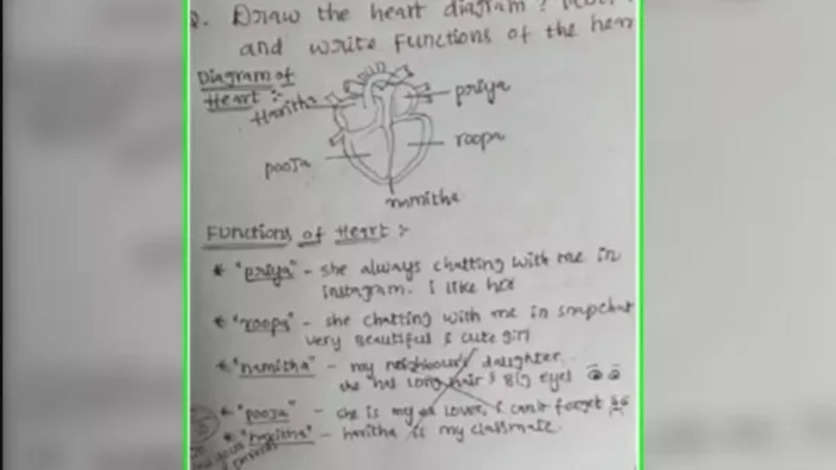 Draw the heart diagram?
and write Functions of the hear
Diagram of
Heart :-
Haritha
priya
roopa
pooja
namitha
Functions of Heart :-
* "priya" - she always chatting with me in
instagram. I like her
* "roopa" - she chatting with me in snapchat
very beautiful & cute girl
* "namitha" - my neighbour's daughter.
she has long hair & Big eyes
* "pooja" - she is my ex lover, I can't forget
* "haritha" - haritha is my classmate.